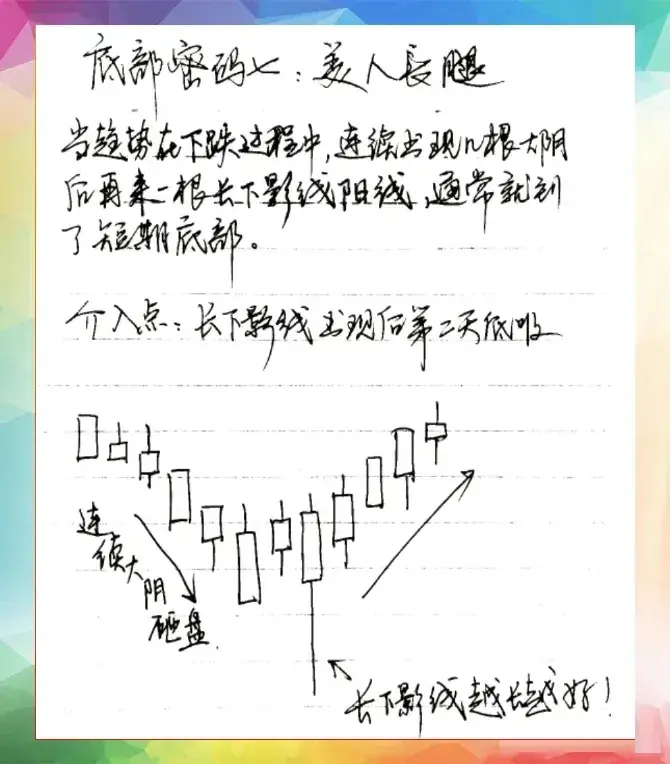 底部密码七：美人長腿
当趋势在下跌过程中，连续出现几根大阴
后再来一根长下影线阻线，通常就到
了短期底部。
介入点：长下影线出现后第二天低吸
连续大阴砸盘
长下影线越长越好！